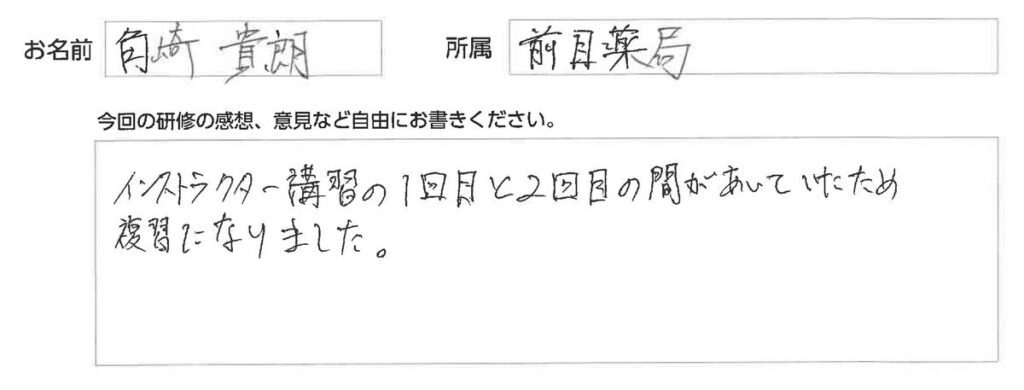 お名前 崎 貴朗 所属 前目薬局
今回の研修の感想、意見など自由にお書きください。
インストラクター講習の1回目と2回目の間があいていたため
複習になりました。